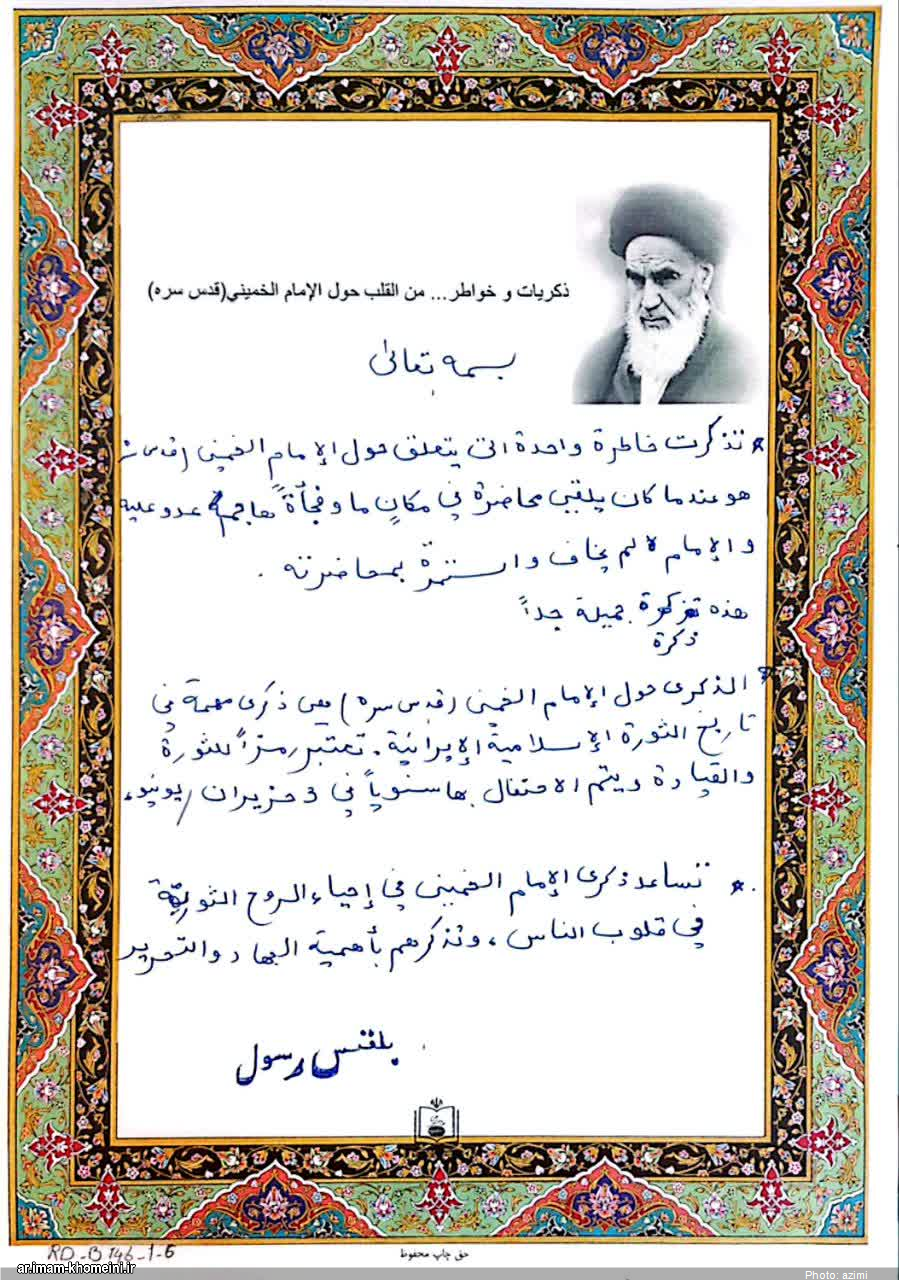 ذكريات و خواطر... من القلب حول الإمام الخميني(قدس سره)
بسمه تعالى
* تذكرت خاطرة واحدة التي يتعلق حول الإمام الخميني (قدس سر
هو عندما كان يلقي محاضرة في مكانٍ ما و فجأةً هاجم عدو عليه
و الإمام لم يخاف و استمرّ بمحاضرته .
هذه تذكرة جميلة جداً
ذكرة
* الذكرى حول الإمام الخميني (قدس سره) هي ذكرى مهمة في
تاريخ الثورة الإسلامية الإيرانية. تعتبر رمزاً للثورة
والقيادة ويتم الاحتفال بها سنوياً في 3 حزيران/يونيو.
* تساعد ذكرى الإمام الخميني في إحياء الروح الثوريّة
في قلوب الناس، وتذكرهم بأهمية الجهاد والتحرير
بلقيس رسول
RD-B 146-1-6
حق چاپ محفوظ
ar.imam-khomeini.ir
Photo: azimi